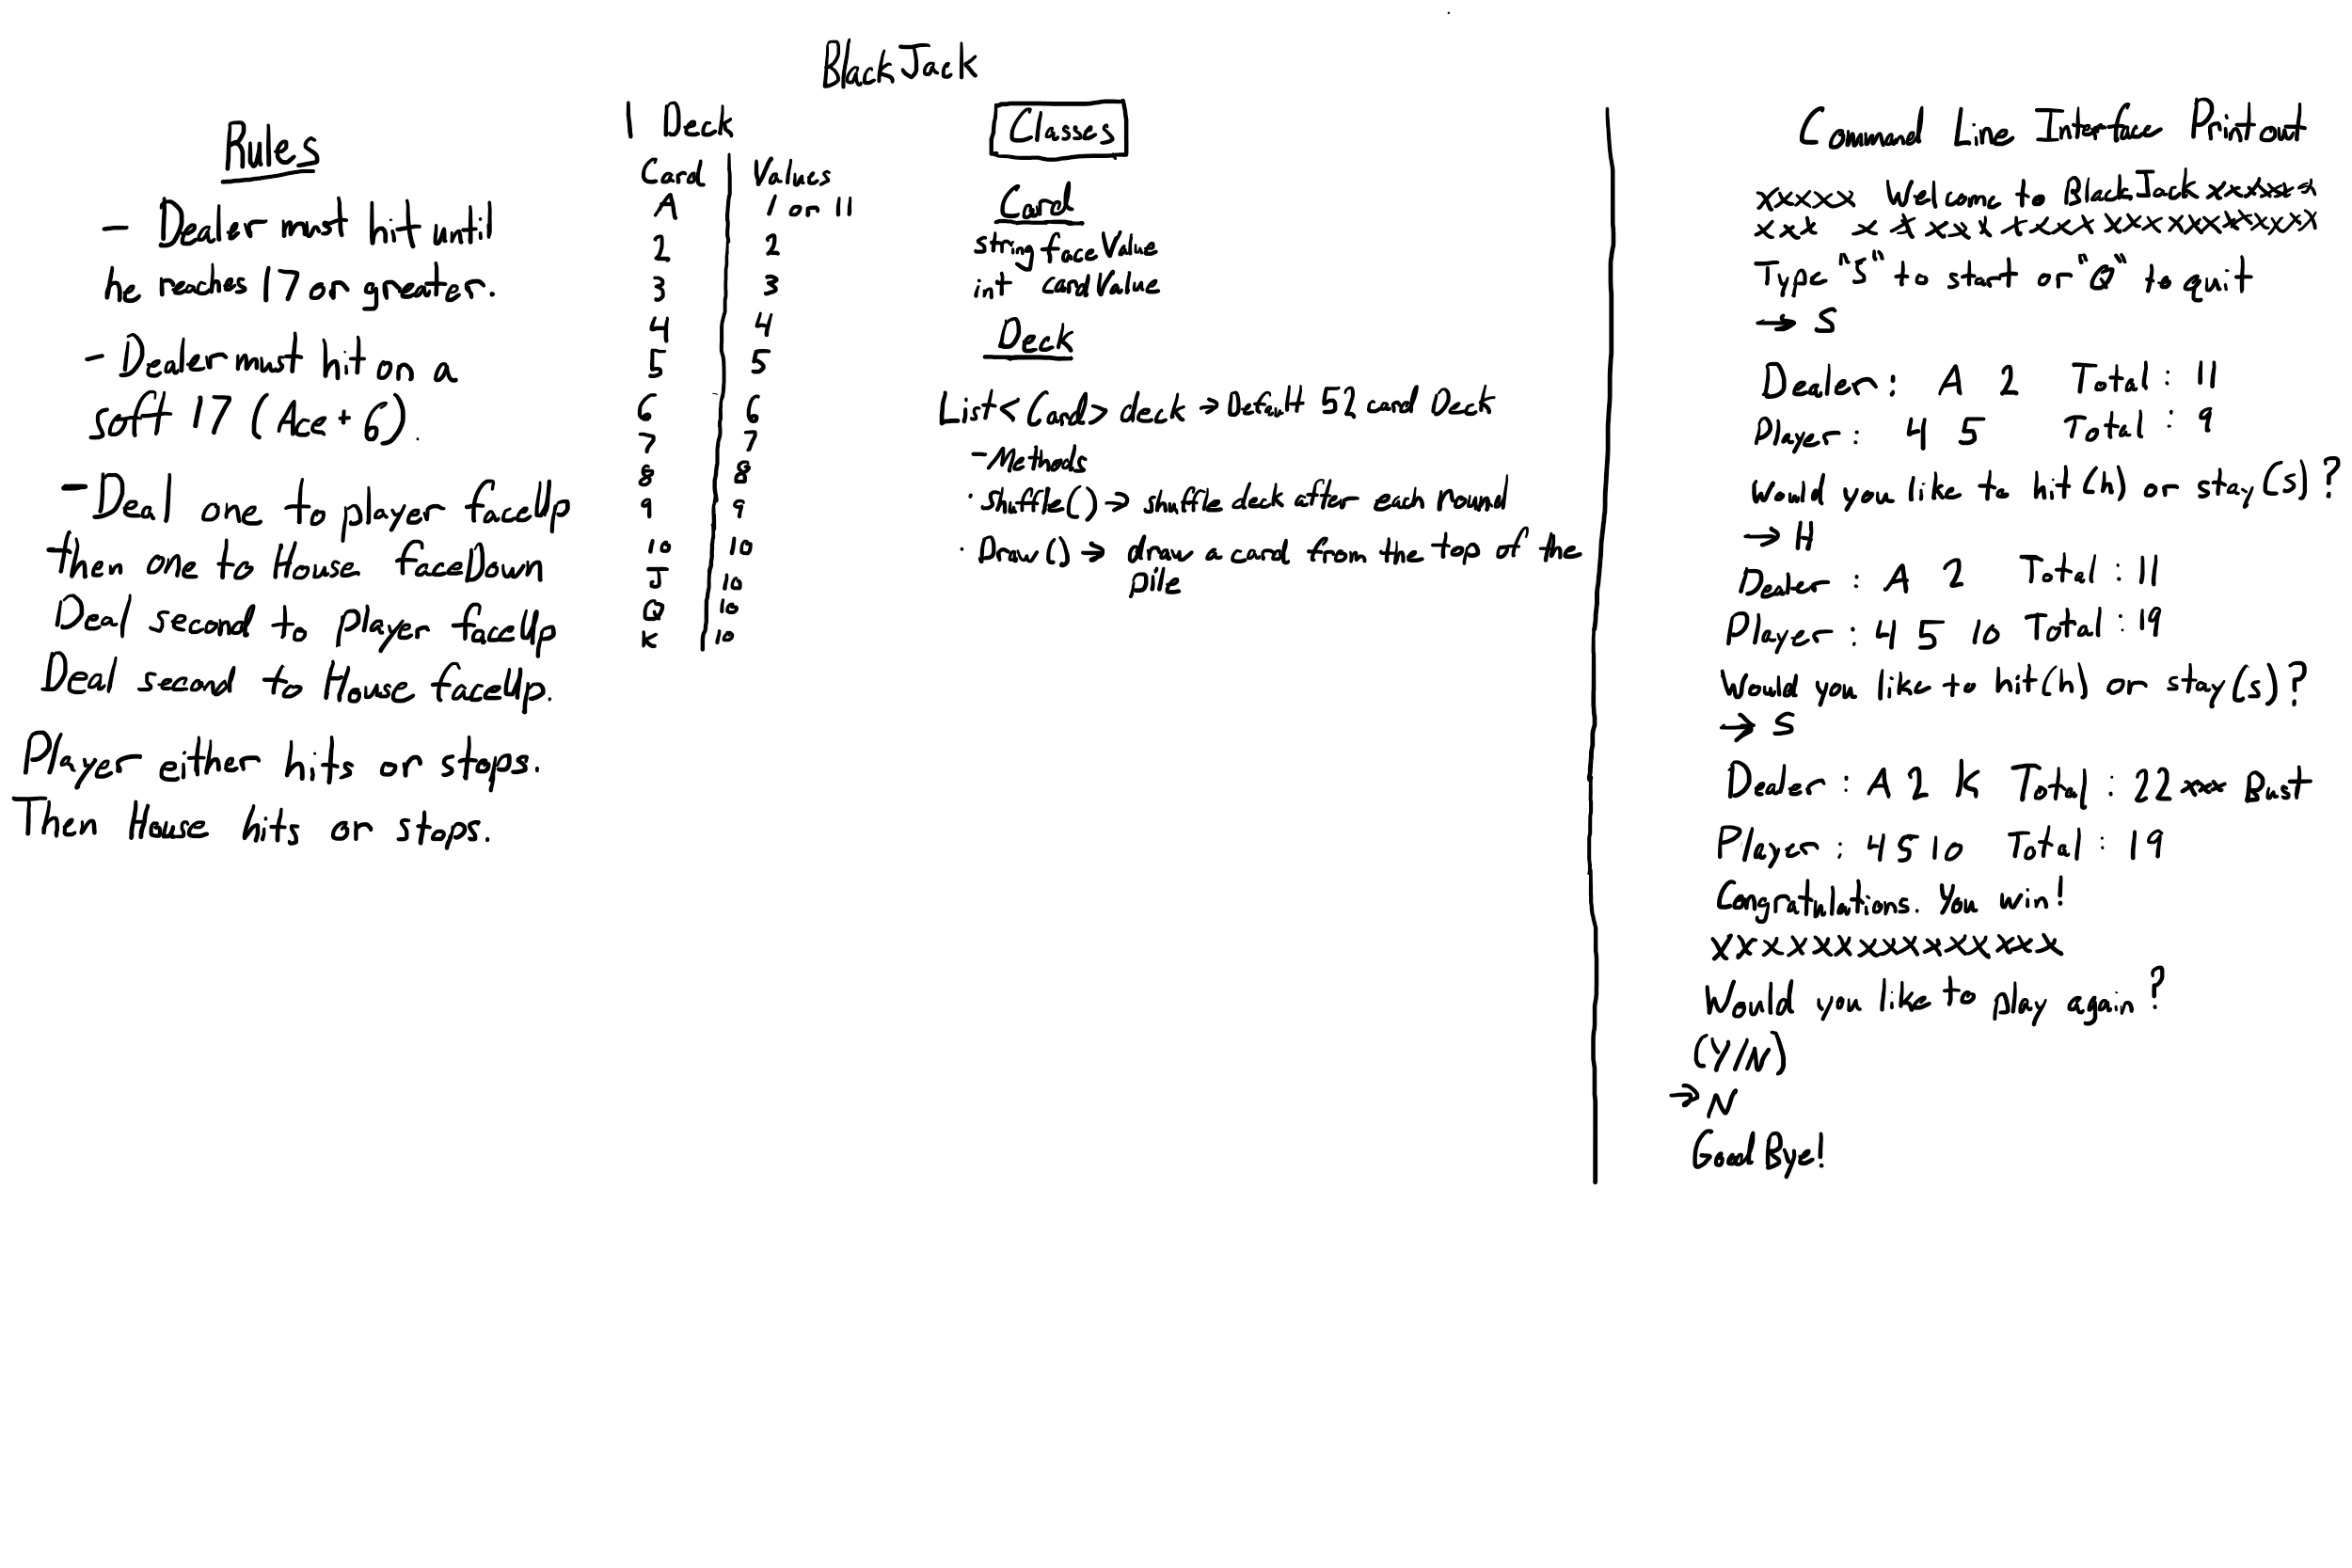 BlackJack
Rules
- Dealer must hit until
he reaches 17 or greater.
- Dealer must hit on a
soft 17 (Ace + 6).
- Deal one to player faceUp
then one to House faceDown
Deal second to player faceUp
Deal second to House faceUp.
Player either hits or stops.
Then House hits or stops.
1 Deck
Card | Values
A 1 or 11
2 2
3 3
4 4
5 5
6 6
7 7
8 8
9 9
10 10
J 10
Q 10
K 10
Classes
Card
string faceValue
int cardValue
Deck
List<Card> deck → Default 52 card Deck
- Methods
· shuffle() → shuffle deck after each round
· Draw() → draw a card from the top of the
pile
Command Line Interface Printout
xxxxx Welcome to BlackJack xxxxxx
xxx xxxxxxxxxxxxxxxxxxx
Type "S" to start or "Q" to quit
→ S
Dealer: A 2 Total: 11
Player: 4 5 Total: 9
Would you like to hit(h) or stay(s)?
→ H
Dealer: A 2 Total: 11
Player: 4 5 10 Total: 19
Would you like to hit(h) or stay(s)?
→ S
Dealer: A 2 K Total: 22 xxx Bust
Player: 4 5 10 Total: 19
Congratulations. You win!
xxxxxxxxxxxxxx
Would you like to play again?
(Y/N)
→ N
GoodBye!